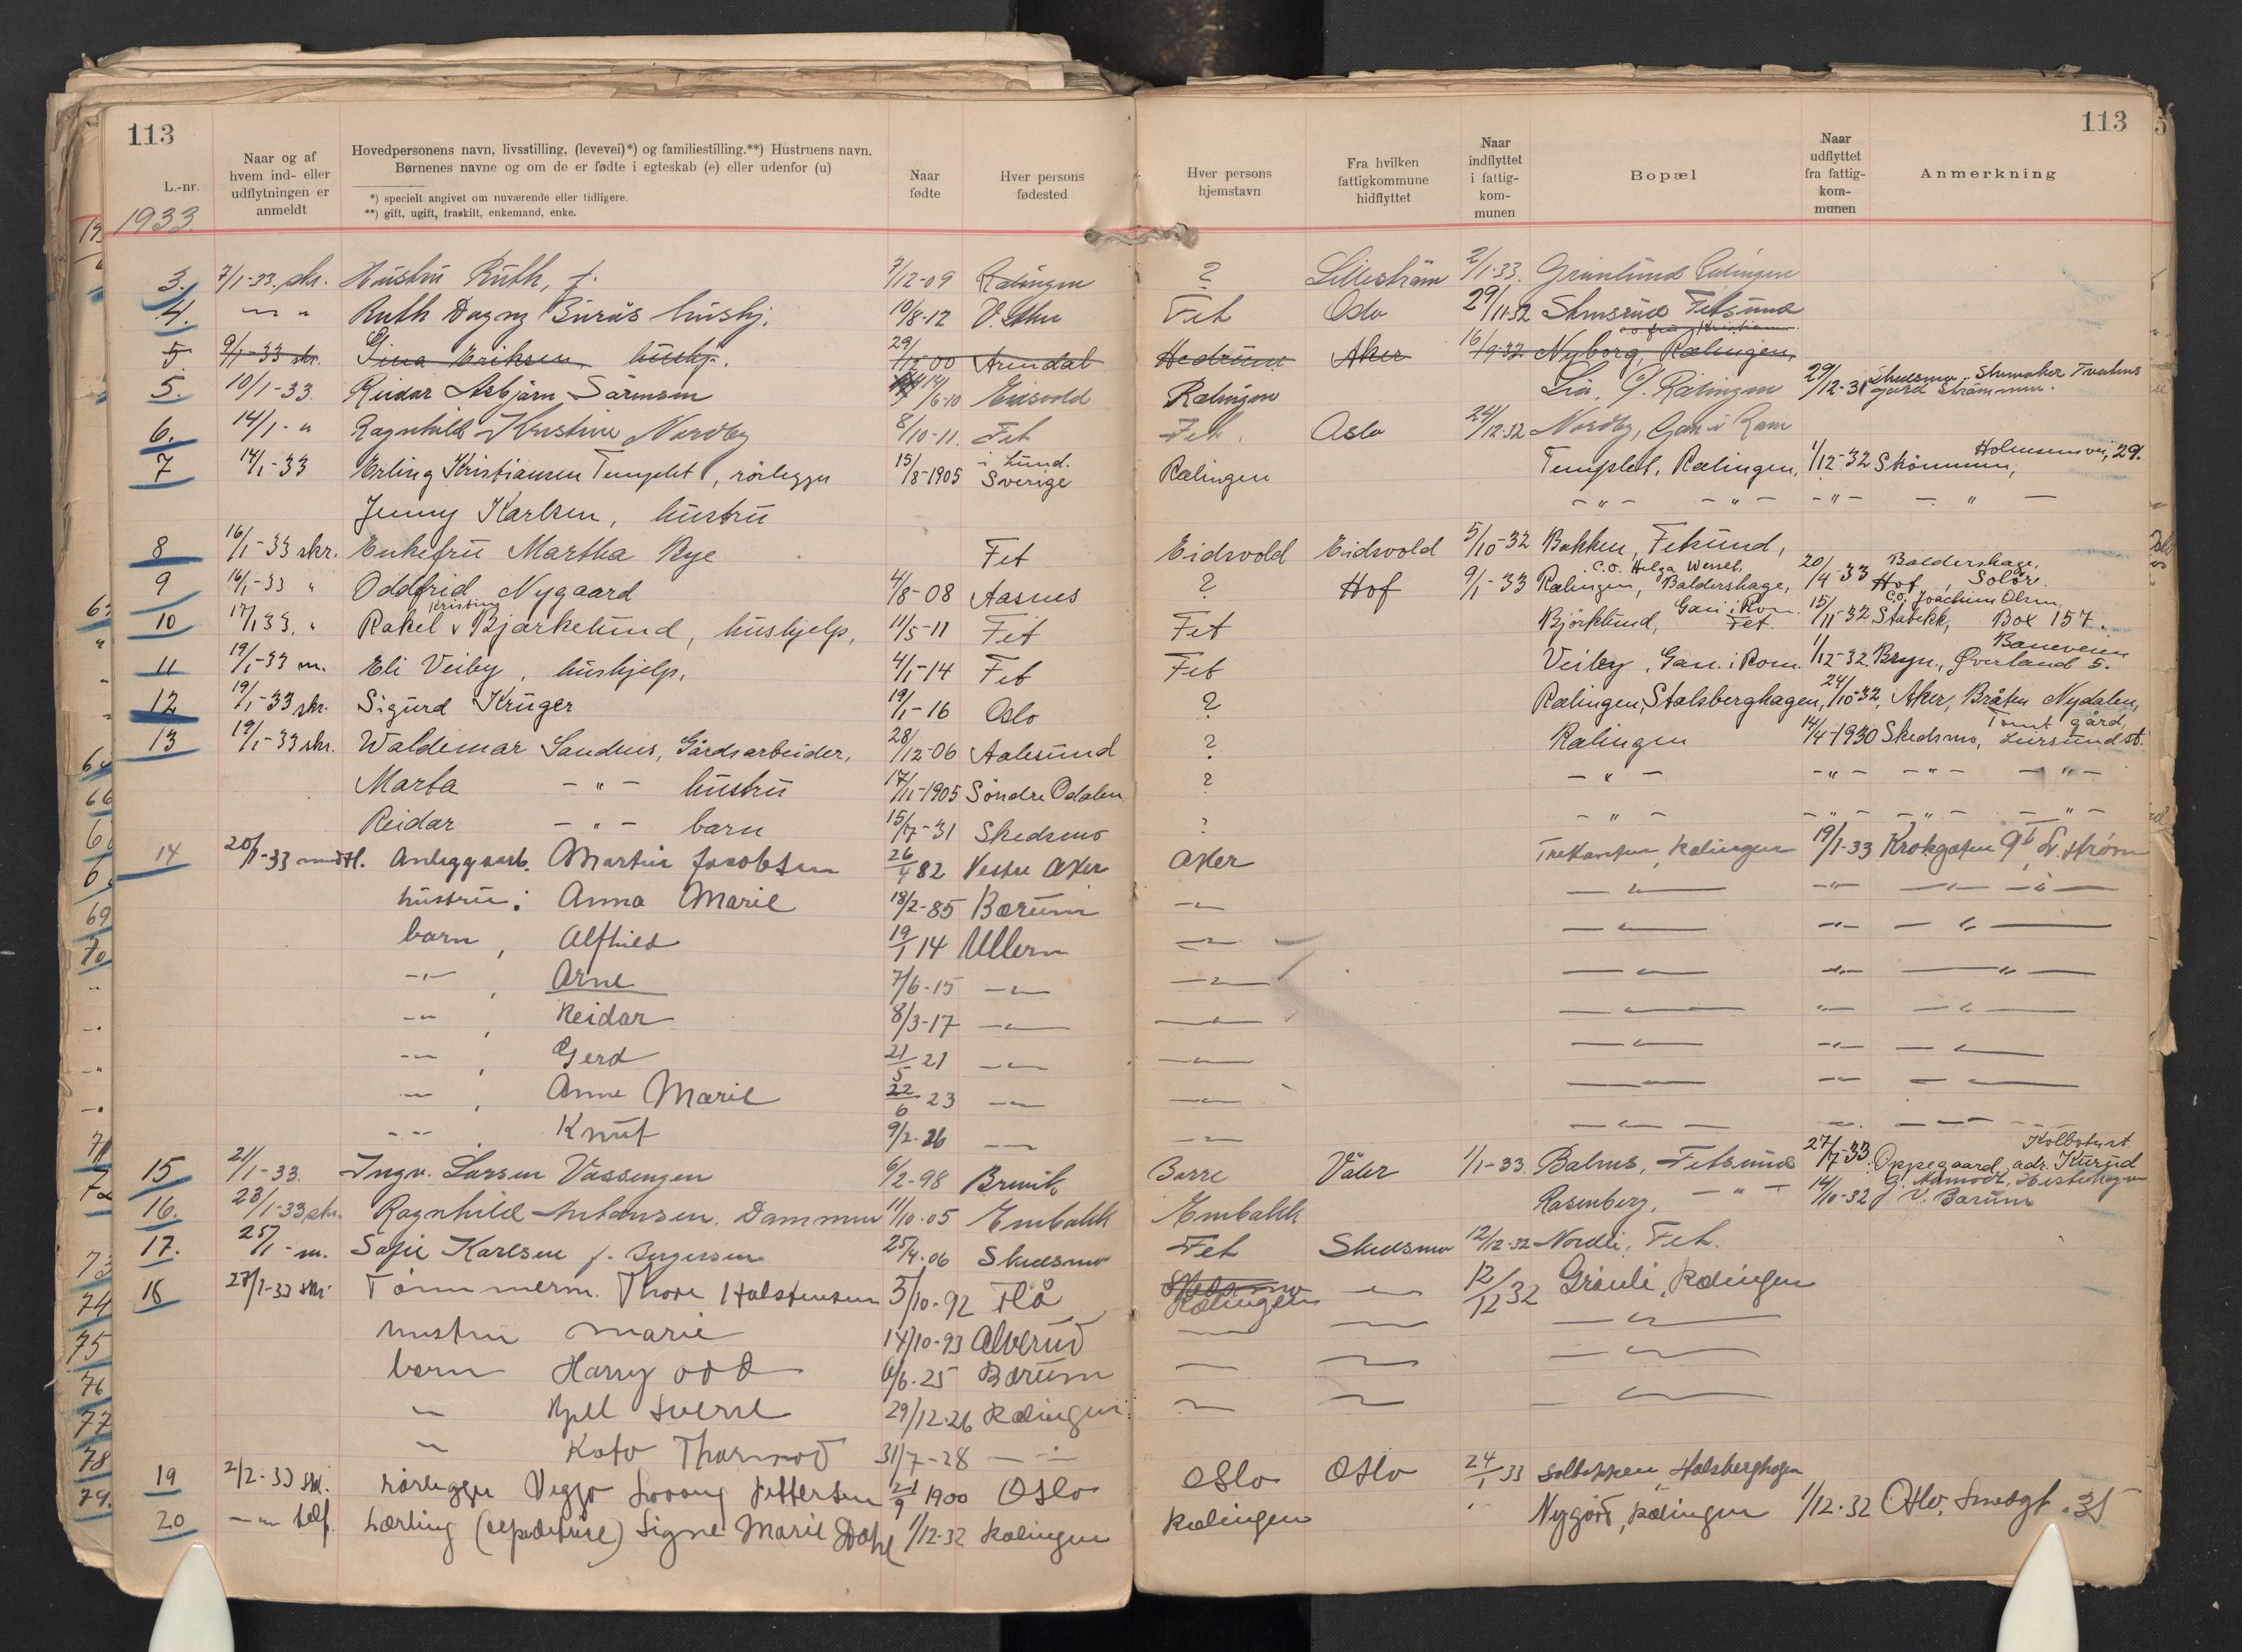 113
113
L.-nr.
Naar og af hvem ind- eller udflytningen er anmeldt
Hovedpersonens navn, livsstilling, (levevei)*) og familiestilling.**) Hustruens navn. Børnenes navne og om de er fødte i egteskab (e) eller udenfor (u)
*) specielt angivet om nuværende eller tidligere.
**) gift, ugift, fraskilt, enkemand, enke.
Naar fødte
Hver persons fødested
Hver persons hjemstavn
Fra hvilken fattigkommune hidflyttet
Naar indflyttet i fattig-kom-munen
Bopæl
Naar udflyttet fra fattig-kom-munen
Anmerkning
1933.
3. 7/1-33. skr. Hustru Ruth, f. 7/12-09 Rælingen ? Lillestrøm 2/1-33. Grønlund Rælingen
4. -"- " Ruth Dagny Burås hushj. 10/8-12 Fet Oslo 29/11-32 Fetsund
5. 9/1-33 skr. Gina Eriksen hushj. 29/12-00 Arendal Hedrum Aker 16/9-32 Nyborg, Rælingen,
5. 10/1-33. Reidar Asbjørn Sørensen 14/6-10 Eidsvold Rælingen Lia, Rælingen 29/12-31 gård Strømmen.
6. 14/1-" Ragnhild Kristine Nordby 8/10-11. Fet Fet. Oslo 24/12-32 Nordby, Gan i Rom
7 14/1-33 Erling Kristiansen Templet, rørlegger 15/8-1905 i Lund. Sverige Rælingen Templet, Rælingen, 1/12-32 Strømmen, Holmsensvei, 29.
Jenny Karlsen, hustru -"- -"- -"- - " -
8 16/1-33 skr. Enkefru Martha Bye Fet Eidsvold Eidsvold 5/10-32 Bakken, Fetsund,
9 16/1-33 " Oddfrid Nygaard 4/8-08 Aasnes ? Hof 9/1-33 Rælingen, c.o. Helga Wessel, Baldershage, 20/4-33 Hof, Solør. Baldershage,
10 17/1 33. " Rakel Kristine Bjørkelund, hushjelp, 11/5-11 Fet Fet Bjørklund, Gan i Rom. Fet. 15/11-32 Stabekk, c.o. Joachim Olsen, Box 157.
11 19/1-33 m. Eli Veiby, hushjelp, 4/1-14 Fet Fet Veiby, Gan. i Rom. 1/12-32. Bryn., Øverland 5. Baneveien
12 19/1-33 skr. Sigurd Krüger 19/1-16 Oslo ? Rælingen, Stalsberghagen, 24/10-32, Aker, Bråten Nydalen,
13 19/1-33 skr. Waldemar Sandnes, Gårdsarbeider, 28/12-06 Aalesund ? Rælingen 14/4-1930 Skedsmo, Tomt gård, Leirsund st.
Marta -"- hustru 17/11-1905 Søndre Odalen ? -"- -"- -"- -"-
Reidar -"- barn 15/7-31 Skedsmo ? -"- -"- -"- -"-
14 20/1-33 mdtl. Anleggsarb. Martin Jacobsen 26/4 82 Vestre Aker Aker Trekanten, Rælingen 19/1-33 Krokgaten 9b, L.strøm
hustru: Anna Marie 18/2-85 Bærum -"- -"- -"- -"-
barn, Alfhild 19/1 14 Ullern -"- -"- -"- -"-
-"-, Arne 7/6-15 -"- -"- -"- -"- -"-
-"-, Reidar 8/3-17 -"- -"- -"- -"- -"-
-"-, Gerd 21/5 21 -"- -"- -"- -"- -"-
-"-, Anne Marie 22/6 23 -"- -"- -"- -"- -"-
-"-, Knut 9/2-26 -"- -"- -"- -"- -"-
15 21/1-33. Ingv. Larsen Vassengen 6/2-98 Brevik Borre Våler 1/1-33. Balnes, Fetsund 27/7-33 Oppegaard, adr. Kurud Kolbotn st
16. 23/1-33 skr. Ragnhild Antonsen. Dammen 11/10-05 Enebakk Enebakk Rosenberg, -"- 14/10-32 V. Bærum
17. 25/1- m. Sofie Karlsen f. Bergersen 25/4-06 Skedsmo Fet Skedsmo 12/12-32 Nordli, Fet.
18 27/1-33 skr. Tømmerm. Thore Halstensen 5/10-92 Flå Skedsmo Rælingen -"- 12/12 32 Granli, Rælingen
hustru Marie 14/10-93 Alverud -"- -"- -"-
barn Harry Odd 6/6-25 Bærum -"- -"- -"-
-"- Kjell Sverre 29/12-26 Rælingen -"- -"- -"-
-"- Kato Thormod 31/7-28 -"-
19 2/2-33 skr. rørlegger Viggo Pettersen 21/9 1900 Oslo Oslo Oslo 24/1 33 Solbakken, Stalsberghagen
20 -"- telf. Lærling Signe Marie Dahl 1/12-32 Rælingen Rælingen Nygård, Rælingen 1/12-32 Oslo, Smedgt. 35